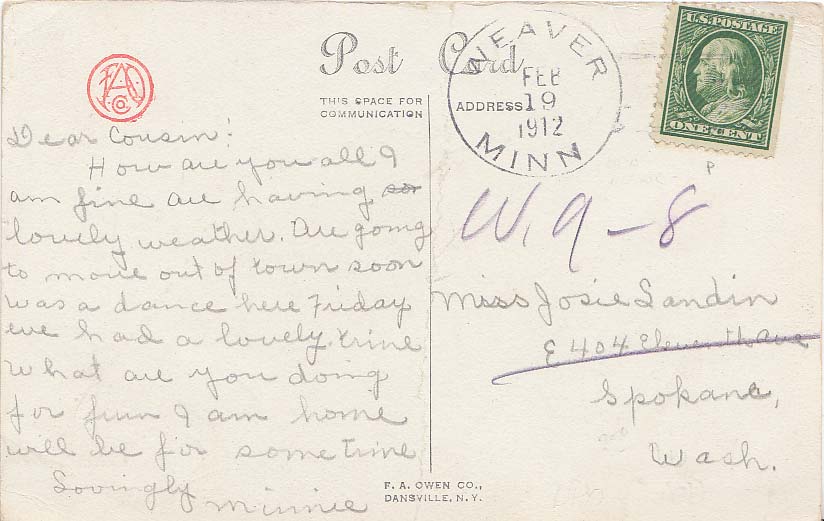 Post Card
THIS SPACE FOR
COMMUNICATION
ADDRESS
WEAVER
FEB
19
1912
MINN
U.S. POSTAGE
ONE CENT
FAO
Co
Dear Cousin!
How are you all I
am fine are having
lovely weather. Are going
to move out of town soon
was a dance here Friday
eve had a lovely time
What are you doing
for fun I am home
will be for some time
Lovingly Minnie
W. 9 - 8
Miss Josie Landin
E 404 Eleventh Ave
Spokane,
Wash.
F. A. OWEN CO.,
DANSVILLE, N.Y.